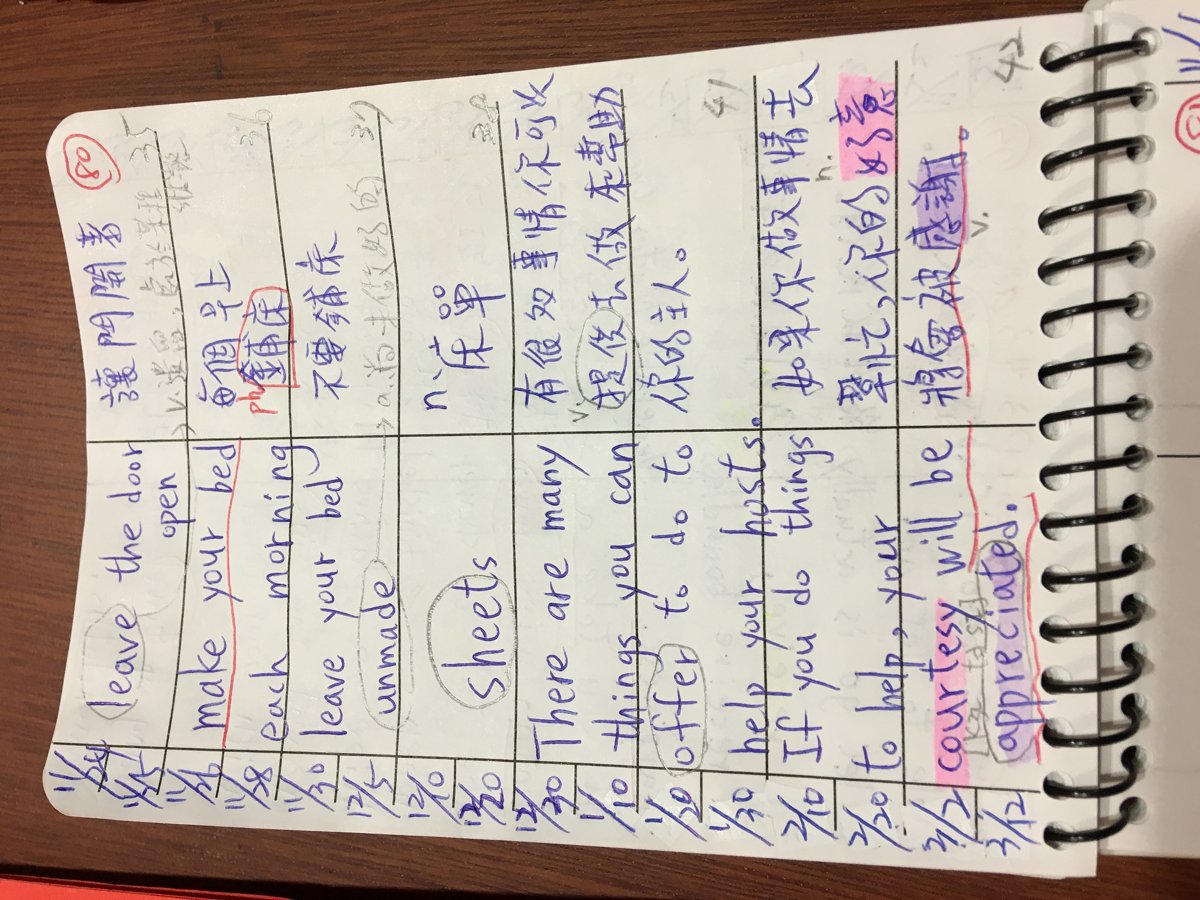 80
11/24
leave the door
讓門開著
35
11/25
open
11/26
make your bed
每個早上
36
11/28
each morning
ph
鋪床
11/30
leave your bed
不要鋪床
37
12/5
unmade
12/10
n.
38
12/20
sheets
床單
12/30
There are many
有很好事情你可以
1/10
things you can
v.
提供去做來幫助
1/20
offer to do to
你的主人。
41
1/30
help your hosts.
2/10
If you do things
如果你做事情去
2/20
to help, your
幫忙,你的好意
n.
3/2
courtesy will be
將會被感謝。
v.
3/12
appreciated.
42